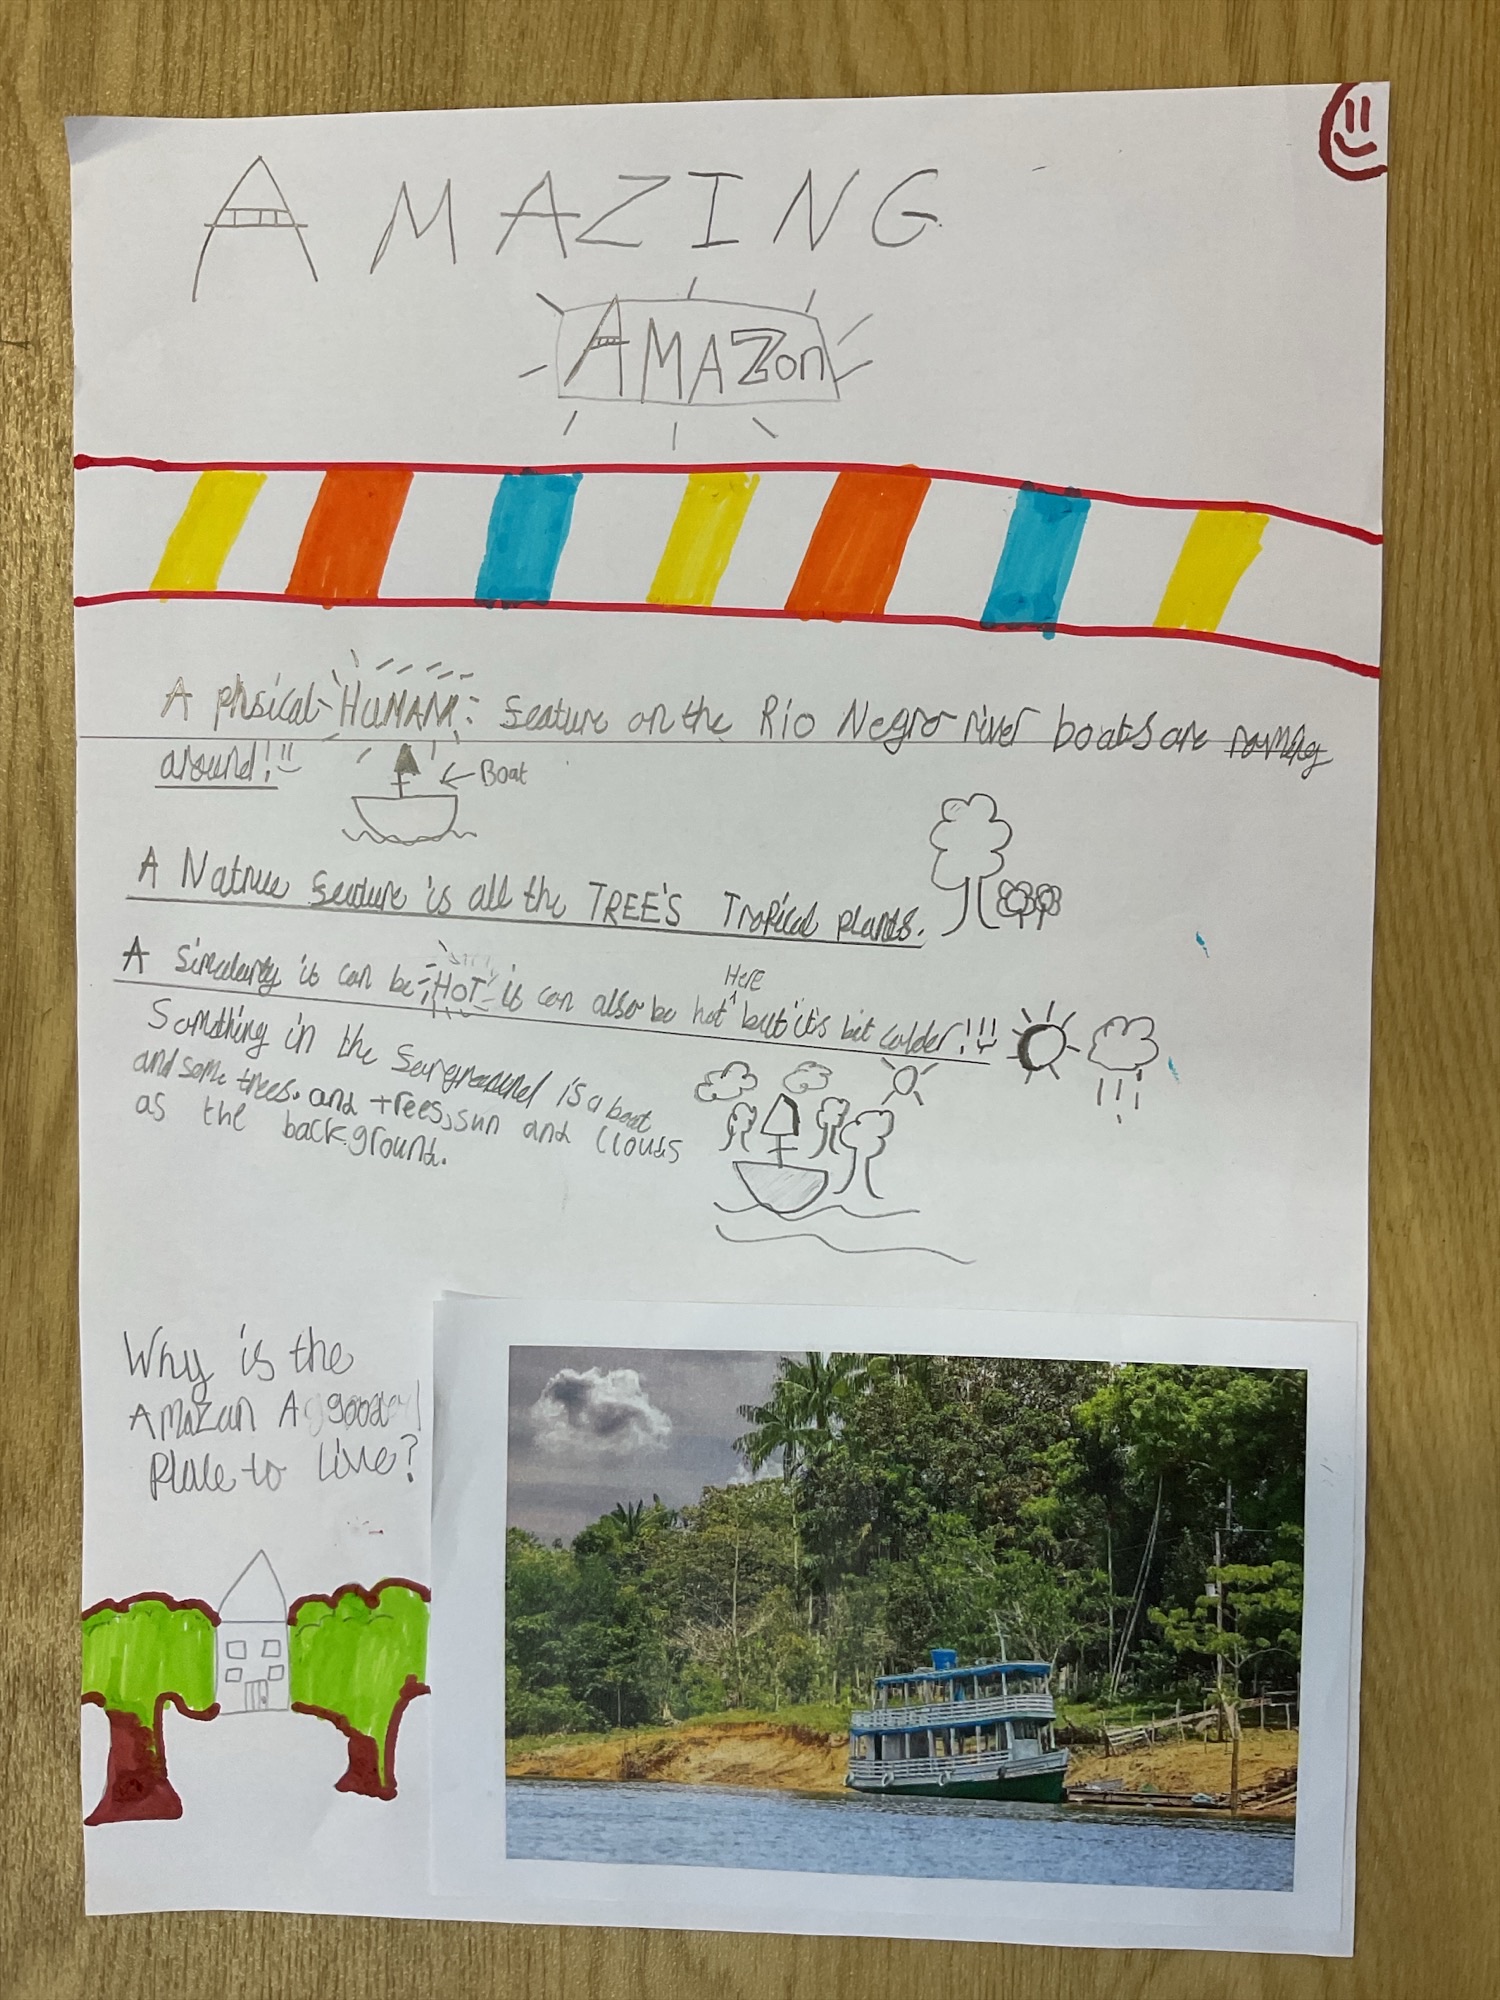 AMAZING
AMAZon
A phsical HUMAN: feature on the Rio Negro river boats are roaming
around!
Boat
A Natrue feature is all the TREE'S Tropical plants.
A Simularity it can be HOT it can also be hot Here but it's bit colder!!!
Something in the forground is a boat
and some trees. and trees, sun and clouds
as the background.
Why is the
AMaZan A good
Place to Live?